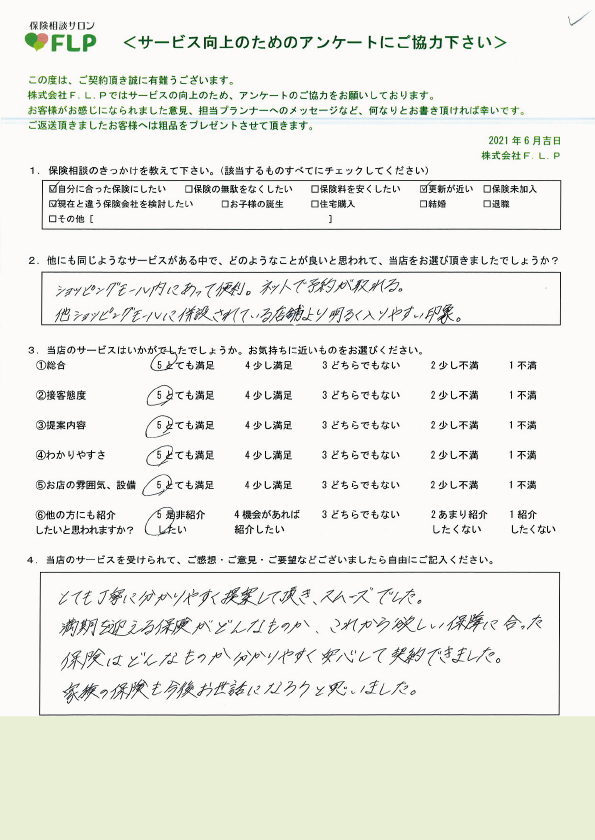 保険相談サロン
FLP
＜サービス向上のためのアンケートにご協力下さい＞
この度は、ご契約頂き誠に有難うございます。
株式会社Ｆ．Ｌ．Ｐではサービスの向上のため、アンケートのご協力をお願いしております。
お客様がお感じになられました意見、担当プランナーへのメッセージなど、何なりとお書き頂ければ幸いです。
ご返送頂きましたお客様へは粗品をプレゼントさせて頂きます。
2021年6月吉日
株式会社Ｆ．Ｌ．Ｐ
１．保険相談のきっかけを教えて下さい。（該当するものすべてにチェックしてください）
☑自分に合った保険にしたい □保険の無駄をなくしたい □保険料を安くしたい ☑更新が近い □保険未加入
☑現在と違う保険会社を検討したい □お子様の誕生 □住宅購入 □結婚 □退職
□その他［ ］
２．他にも同じようなサービスがある中で、どのようなことが良いと思われて、当店をお選び頂きましたでしょうか？
ショッピングモール内にあって便利。ネットで予約が取れる。
他ショッピングモールに併設されている店舗より明るく入りやすい印象。
３．当店のサービスはいかがでしたでしょうか。お気持ちに近いものをお選びください。
①総合 5とても満足 4少し満足 3どちらでもない 2少し不満 1不満
②接客態度 5とても満足 4少し満足 3どちらでもない 2少し不満 1不満
③提案内容 5とても満足 4少し満足 3どちらでもない 2少し不満 1不満
④わかりやすさ 5とても満足 4少し満足 3どちらでもない 2少し不満 1不満
⑤お店の雰囲気、設備 5とても満足 4少し満足 3どちらでもない 2少し不満 1不満
⑥他の方にも紹介 5是非紹介 4機会があれば 3どちらでもない 2あまり紹介 1紹介
したいと思われますか？ したい 紹介したい したくない したくない
４．当店のサービスを受けられて、ご感想・ご意見・ご要望などございましたら自由にご記入ください。
とても丁寧に分かりやすく提案して頂き、スムーズでした。
満期を迎える保険がどんなものか、これから欲しい保障に合った
保険はどんなものか分かりやすく安心して契約できました。
家族の保険も今後お世話になろうと思いました。